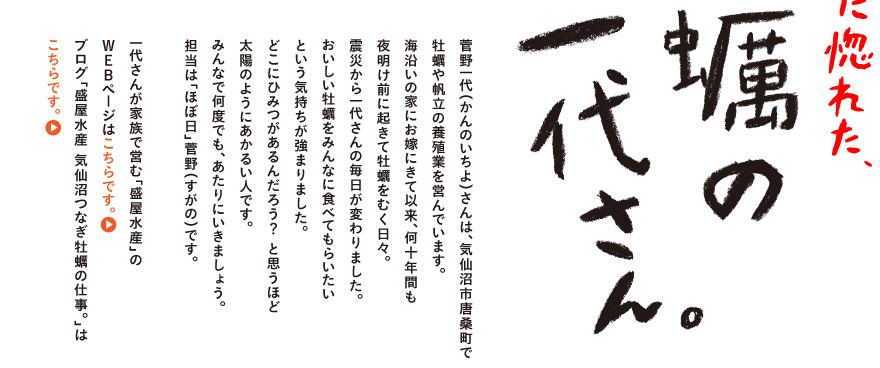 た惚れた、
蠣の
一代さん。
菅野一代（かんのいちよ）さんは、気仙沼市唐桑町で
牡蠣や帆立の養殖業を営んでいます。
海沿いの家にお嫁にきて以来、何十年間も
夜明け前に起きて牡蠣をむく日々。
震災から一代さんの毎日が変わりました。
おいしい牡蠣をみんなに食べてもらいたい
という気持ちが強まりました。
どこにひみつがあるんだろう？ と思うほど
太陽のようにあかるい人です。
みんなで何度でも、あたりにいきましょう。
担当は「ほぼ日」菅野（すがの）です。
一代さんが家族で営む「盛屋水産」の
ＷＥＢページはこちらです。
ブログ「盛屋水産 気仙沼つなぎ牡蠣の仕事。」は
こちらです。